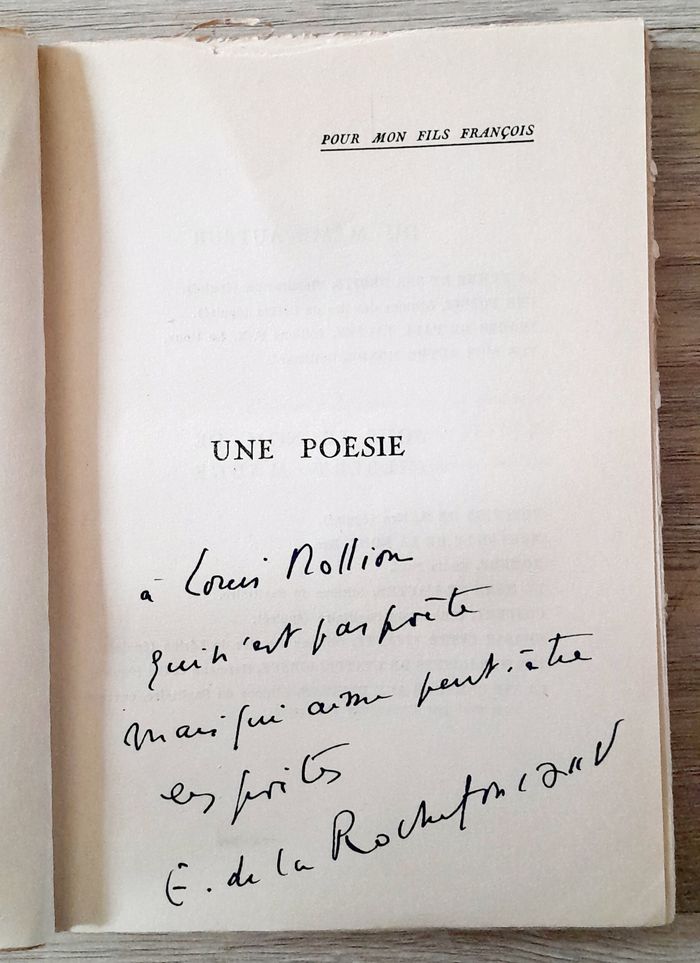 POUR MON FILS FRANÇOIS
UNE POÉSIE
à Louis Mollion
qui n'est pas poète
mais qui aime peut-être
les poètes
E. de la Rochefoucauld